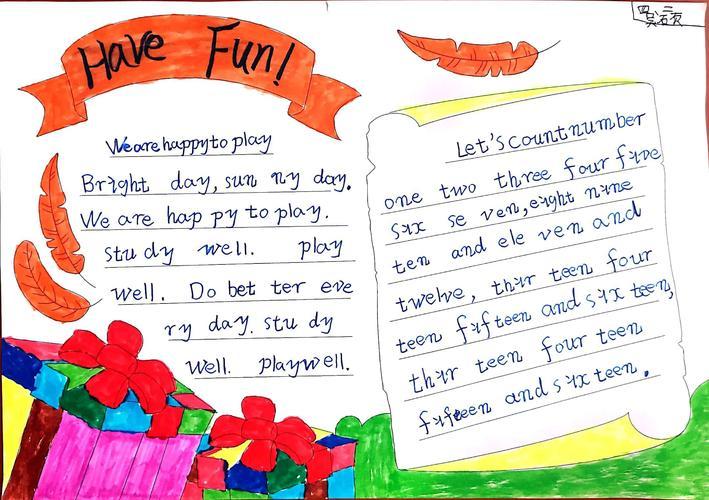 Have Fun!
We are happy to play
Bright day, sun ny day.
We are hap py to play.
stu dy well. play
well. Do bet ter eve
ry day. stu dy
well. play well.
Let's count number
one two three four five
six se ven, eight nine
ten and ele ven and
twelve, thir teen four
teen fifteen and six teen,
thir teen four teen
fifteen and six teen.